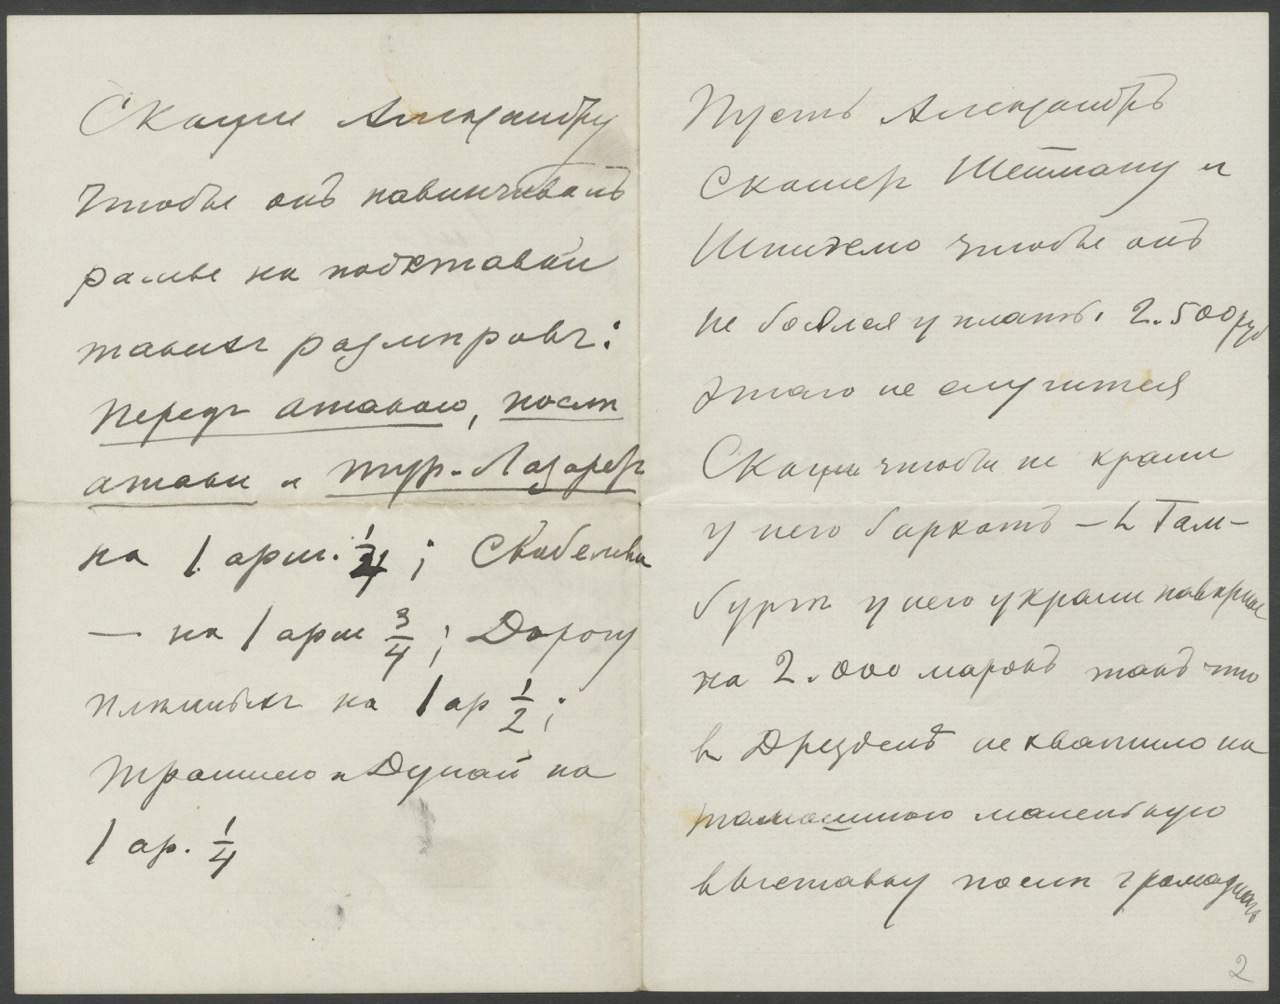 Скажи Александру
чтобы онъ навинчивалъ
рамы на подставки
такихъ размѣровъ:
Передъ атакою, послѣ
атаки и тюр. Лазаретъ
на 1 арш. 1/4; Скобелева
— на 1 арш 3/4; Дорогу
плѣнныхъ на 1 ар 1/2;
Траншею и Дунай на
1 ар. 1/4
Пусть Александръ
скажетъ Шетману и
чтобы онъ
не боялся уплат. 2.500 руб
этого не случится
Скажи чтобы не крали
у него бархатъ — в Гам-
бургѣ у него украли навѣрное
на 2.000 марокъ такъ что
в Дрезденѣ не хватило на
тамошнюю маленькую
выставку послѣ громадной
2